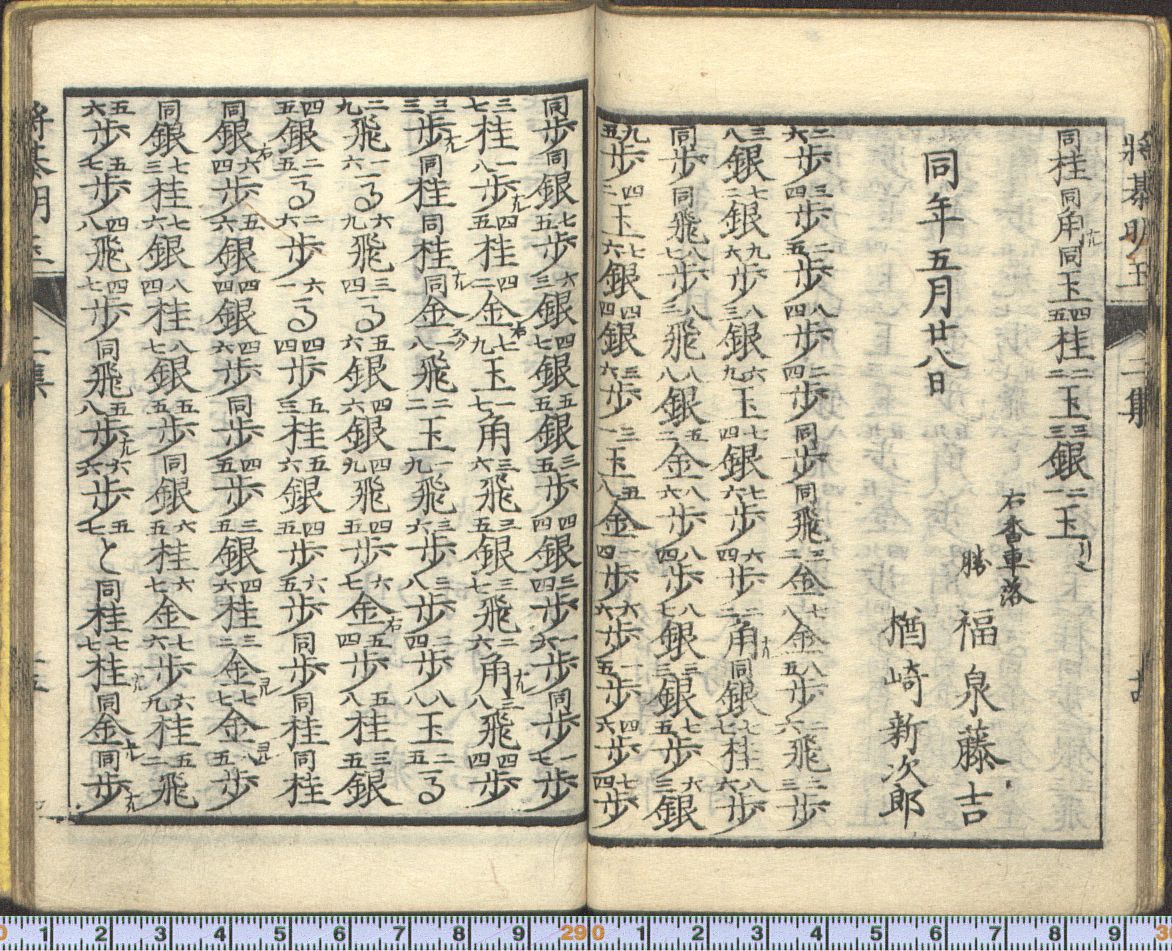 将棊明玉 二集
同桂同角成同玉四五桂二二玉三三銀二一玉
右香車落
勝 福泉藤吉
楢崎新次郎
同年五月廿八日
二六歩三四歩二五歩八四歩二四歩同歩同飛三二金七八金八五歩二六飛二三歩
三八銀七二銀九六歩八三銀六九玉七四銀七六歩六四歩二二角成同銀七七桂八六歩
同歩同飛八七歩八二飛八八銀五二金八六歩八四歩八七銀三三銀七五歩六三銀
九五歩四二玉七六銀四四銀三六歩三一玉五八金五四歩六六歩一五歩四六歩七四歩
同歩同銀七五歩六三銀四七銀五五銀三五歩四四銀三四歩一六歩同歩一七歩
三七桂一八歩成四五桂四二金右七九玉一七角三六飛三五銀三七飛二六角成三八飛四四歩
三三歩成同桂同桂成同金引一八飛二二玉一九飛三六歩三八歩四四歩八八玉二五る
二九飛一六る六九飛三四る五六銀四六銀四九飛四五歩六七金右五四歩五八桂三五銀
四五銀二五る二六歩六一る四四歩五三桂五六銀四五歩六五歩同歩同桂同桂
同銀右六四歩五六銀四四銀四六歩同歩四五歩三五銀四六桂三二金引七七金引八五歩
同銀七三桂七六銀八四桂八七銀五五歩同銀六五桂六七金七六歩六九桂五二飛
五六歩五七歩四八飛四七歩同飛五八歩成六六歩五七と同桂七七桂成同金左同歩成
将棊明玉 二集